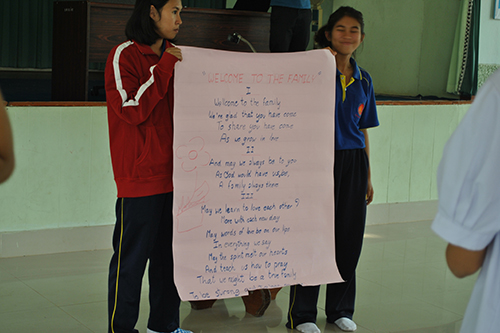 "WELCOME TO THE FAMILY"
I
Welcome to the family
We're glad that you have come
To share you
As we grow in love
II
And may we always be to you
As God would have us be,
A family always there
III
May we learn to love each other
More with each new day
May words of love be on our lips
In everything we say
May the spirit melt our hearts
And teach us how to pray
That we might be a true family